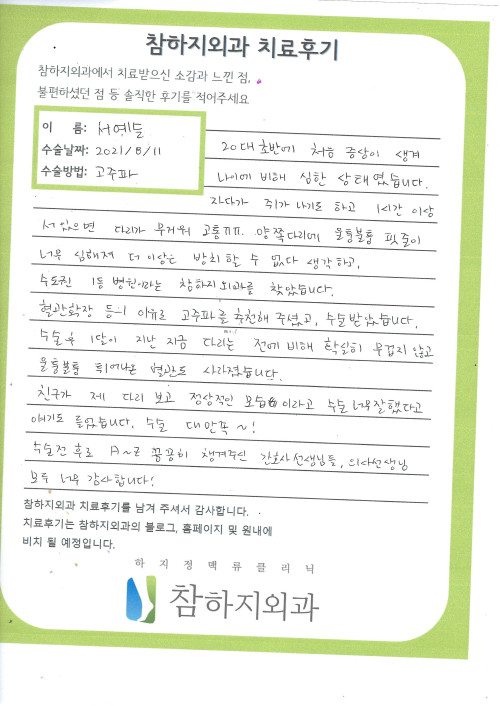 참하지외과 치료후기
참하지외과에서 치료받으신 소감과 느낀 점,
불편하셨던 점 등 솔직한 후기를 적어주세요
이 름: 서예들
수술날짜: 2021/8/11
수술방법: 고주파
20대 초반에 처음 증상이 생겨
나이에 비해 심한 상태였습니다.
자다가 쥐가 나기도 하고 1시간 이상
서있으면 다리가 무거워 고통ㅠㅠ. 양쪽다리에 울퉁불퉁 핏줄이
너무 심해져 더이상은 방치할 수 없다 생각하고,
수도권 1등 병원이라는 참하지외과를 찾았습니다.
혈관확장 등의 이유로 고주파를 추천해 주셨고, 수술받았습니다.
수술 후 1달이 지난 지금 다리는 전에 비해 확실히 무겁지 않고
울퉁불퉁 튀어나온 혈관도 사라졌습니다.
친구가 제 다리 보고 정상적인 모습이라고 수술 너무잘했다고
얘기도 들었습니다. 수술 대만족~!
수술전 후로 A~Z 꼼꼼히 챙겨주신 간호사선생님들, 의사선생님
모두 너무 감사합니다!
참하지외과 치료후기를 남겨 주셔서 감사합니다.
치료후기는 참하지외과의 블로그, 홈페이지 및 원내에
비치 될 예정입니다.
하지정맥류클리닉
참하지외과